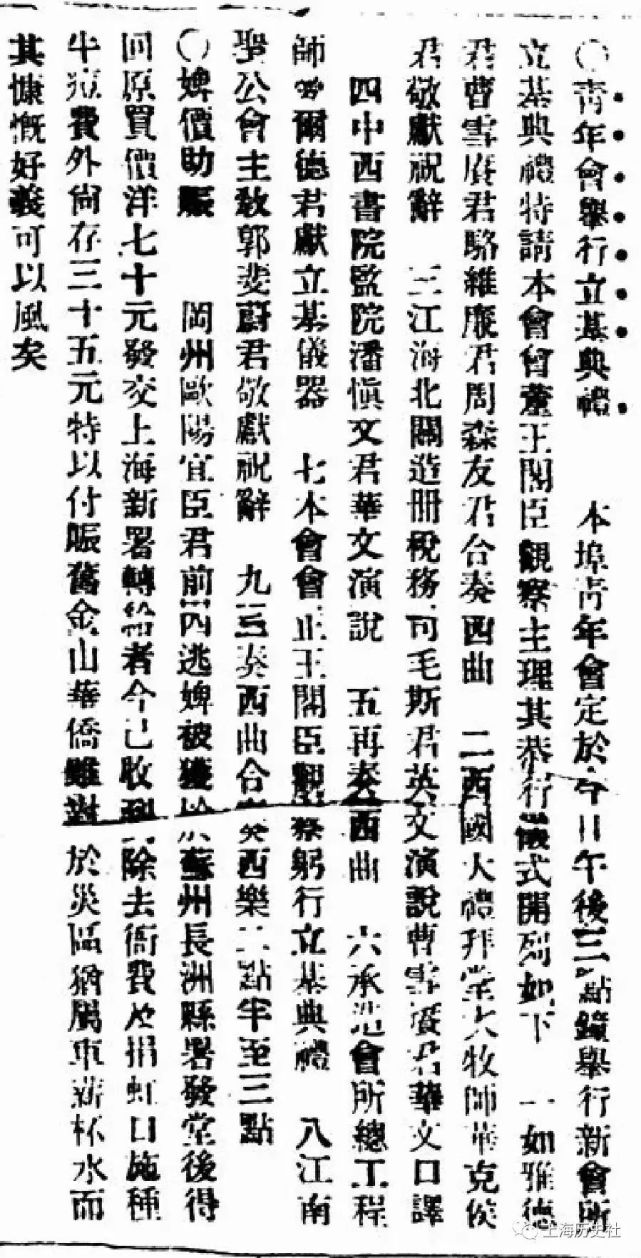 ○靑年會舉行立基典禮　本埠靑年會定於今日午後三點鐘舉行新會所
立基典禮特請本會會董王閣臣觀察主理其恭行儀式開列如下　一如雅德
君曹雪賡君駱維廉君周森友君合奏西曲　二西國大禮拜堂大牧師華克侯
君敬獻祝辭　三江海北關造册稅務司毛斯君英文演說曹雪賡君華文口譯
四中西書院監院潘愼文君華文演說　五再奏西曲　六承造會所總工程
師爾德君獻立基儀器　七本會會正王閣臣觀察躬行立基典禮　八江南
聖公會主敎郭斐蔚君敬獻祝辭　九三奏西曲合奏西樂二點半至三點
○婢價助賑　岡州歐陽宜臣君前因逃婢被獲於蘇州長洲縣署發堂後得
回原買價洋七十元發交上海新署轉給者今已收到除去衙費及捐虹口施種
牛痘費外尙存三十五元特以付賑舊金山華僑雖對於災區猶屬車薪杯水而
其慷慨好義可以風矣
上海历史社